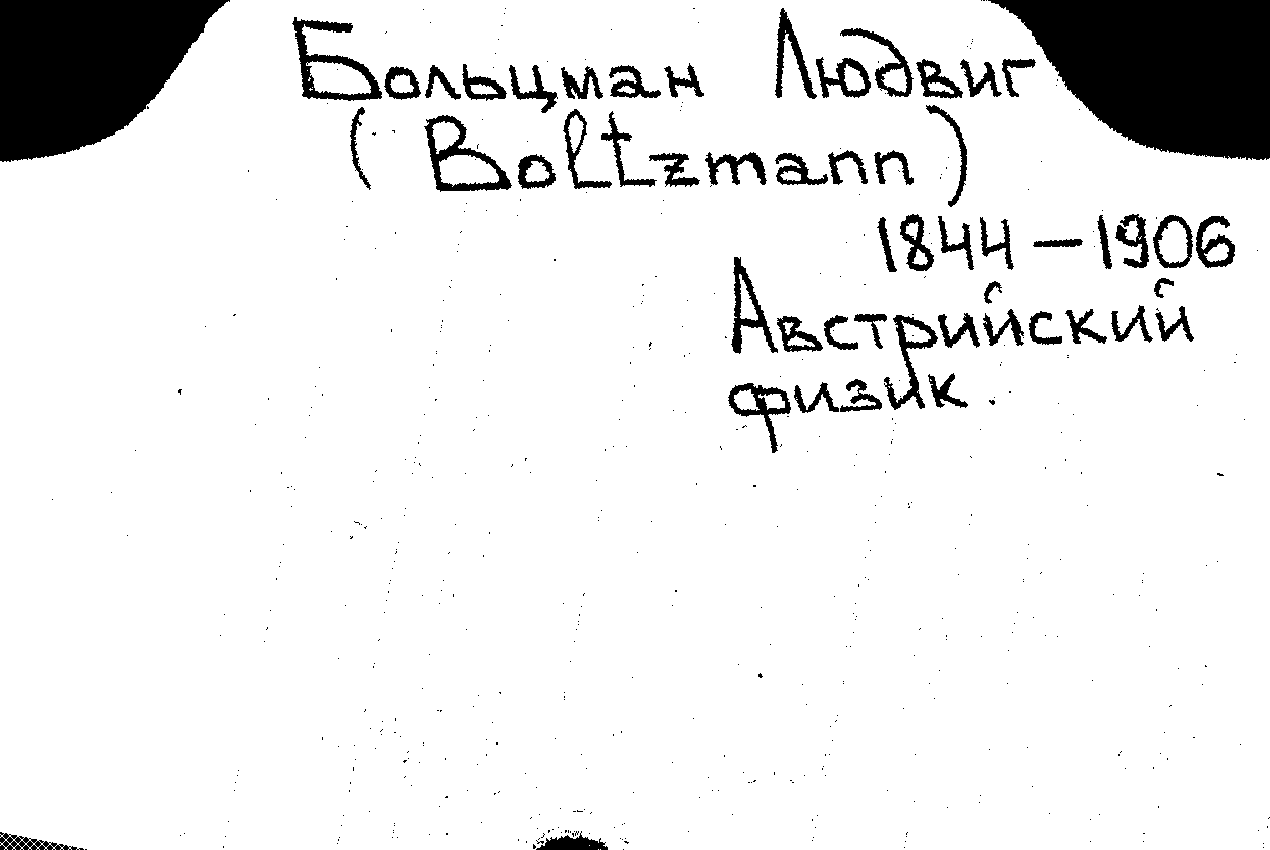 Больцман Людвиг
(Boltzmann)
1844 – 1906
Австрийский
физик.